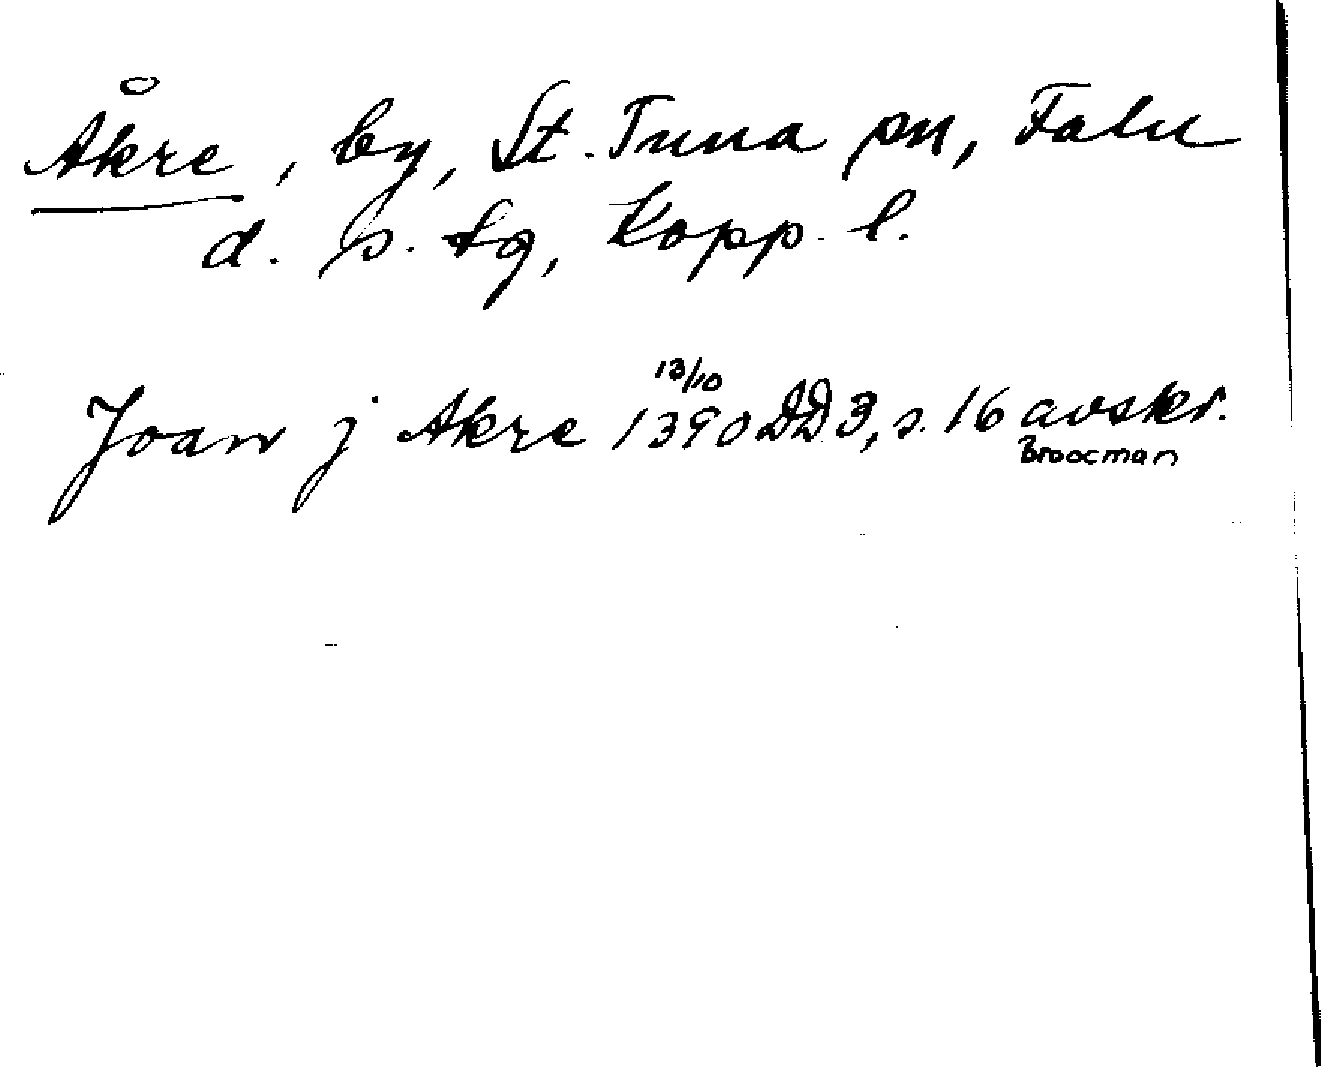 Åkre, by, St. Tuna sn, Falu
d. s. tg, Kopp. l.
Joan j Akre 13/10 1390 DD 3, s. 16 avskr.
Broocman